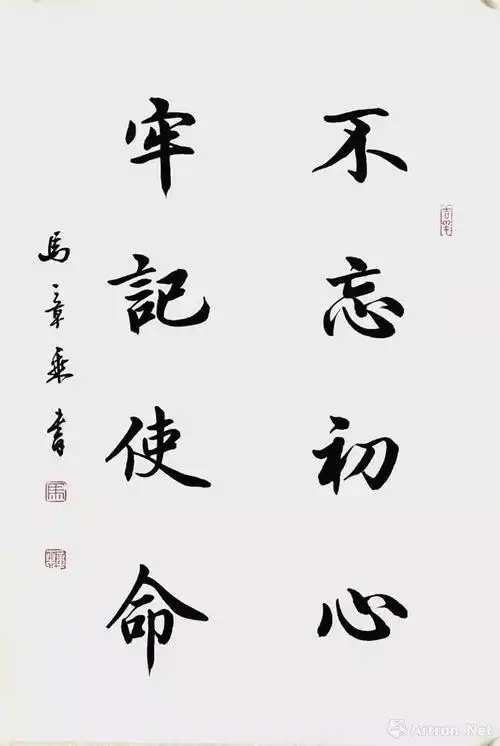 不忘初心
牢記使命
馬章乘書
Artron.Net